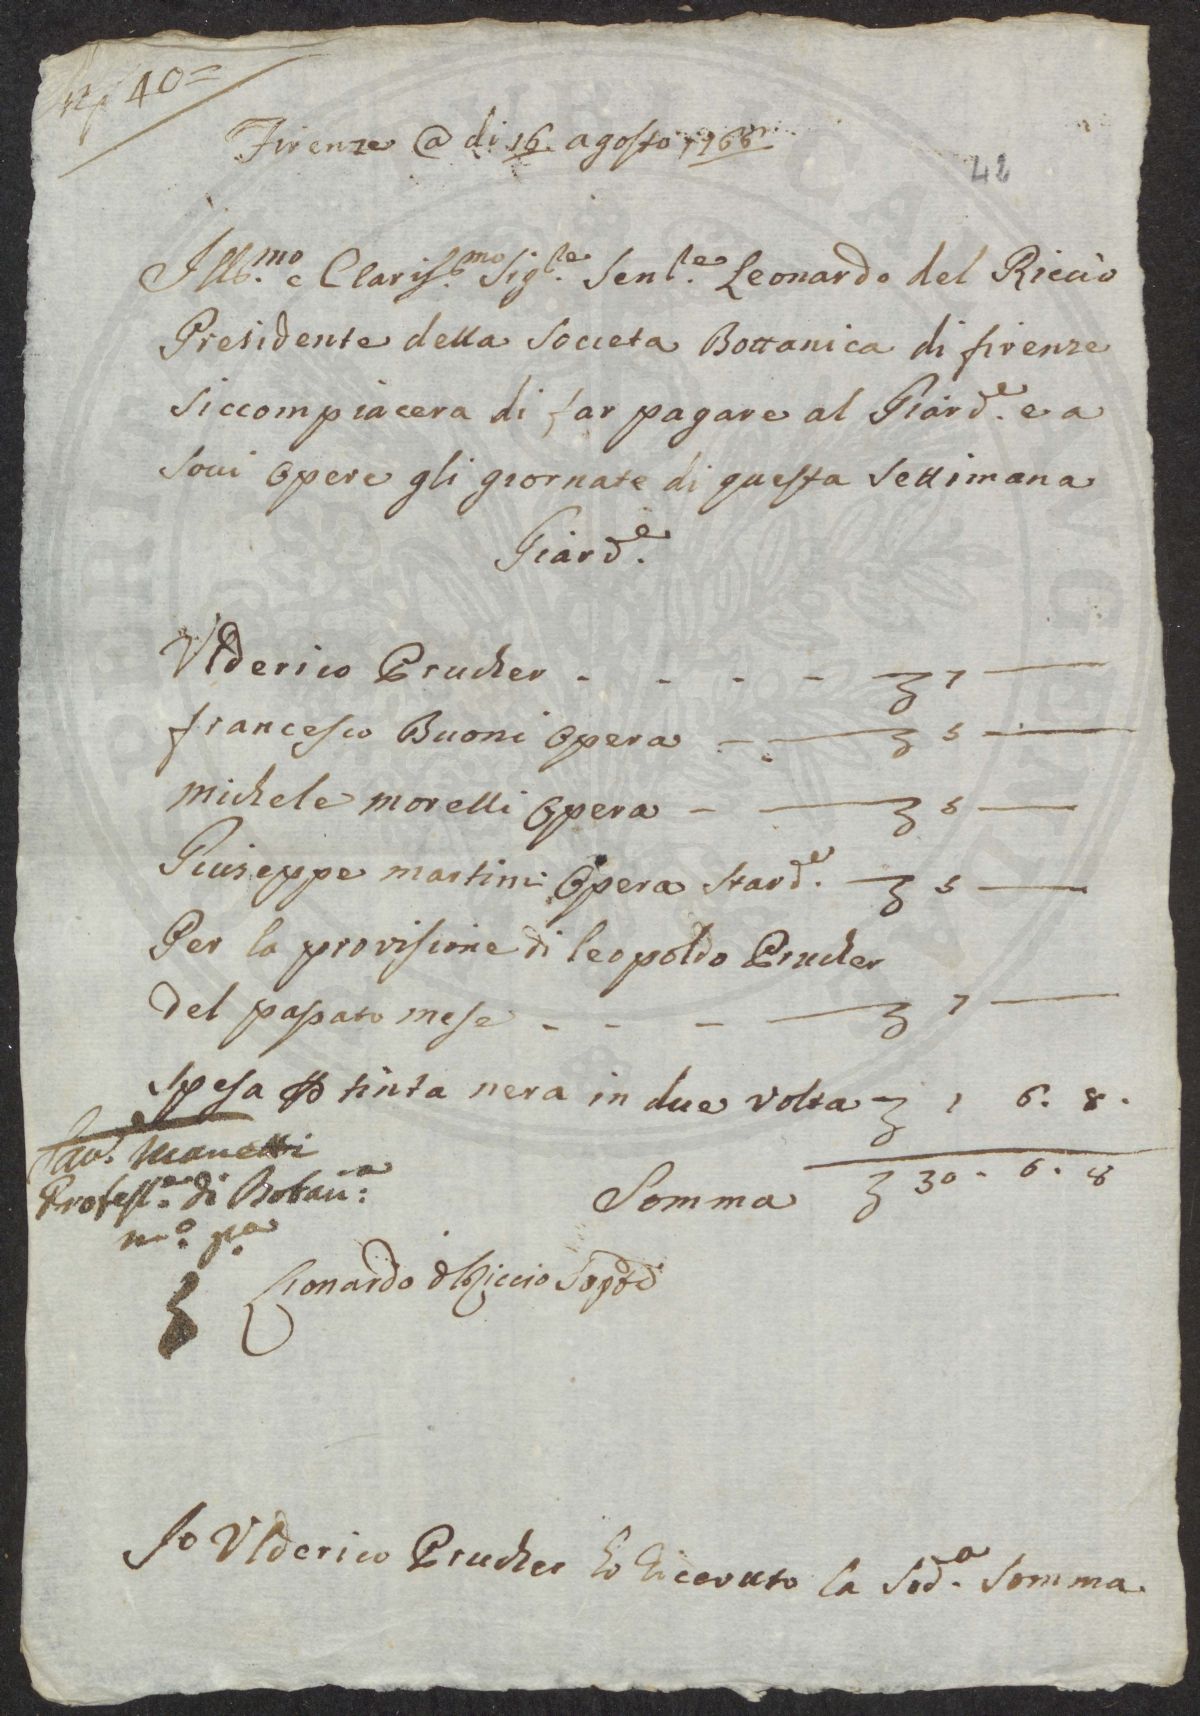 N.º 40=
Firenze @ di 16 agosto 1766
42
Ill.mo e Claris.mo Sig.re Sen.re Leonardo del Riccio
Presidente della Societa Bottanica di firenze
siccompiacera di far pagare al Giard.e e a
soui Opere gli giornate di questa settimana
Giard.e
Vlderico Prucher - - - - ʒ 7 —
francesco Buoni Opera - — ʒ 5 —
michele morelli Opera - — ʒ 5 —
Giuseppe martini Opera Stard.e — ʒ 5 —
Per la provisione di leopoldo Prucher
del passato mese - - - — ʒ 7 —
spesa tinta nera in due volta - ʒ 1 6. 8.
Sav.e Manetti
Profess.e di Botan.a
m.o p.a
Somma ʒ 30 - 6 - 8
Lionardo d Riccio
Io Vlderico Prucher ho riceuuto la Sod.a Somma.